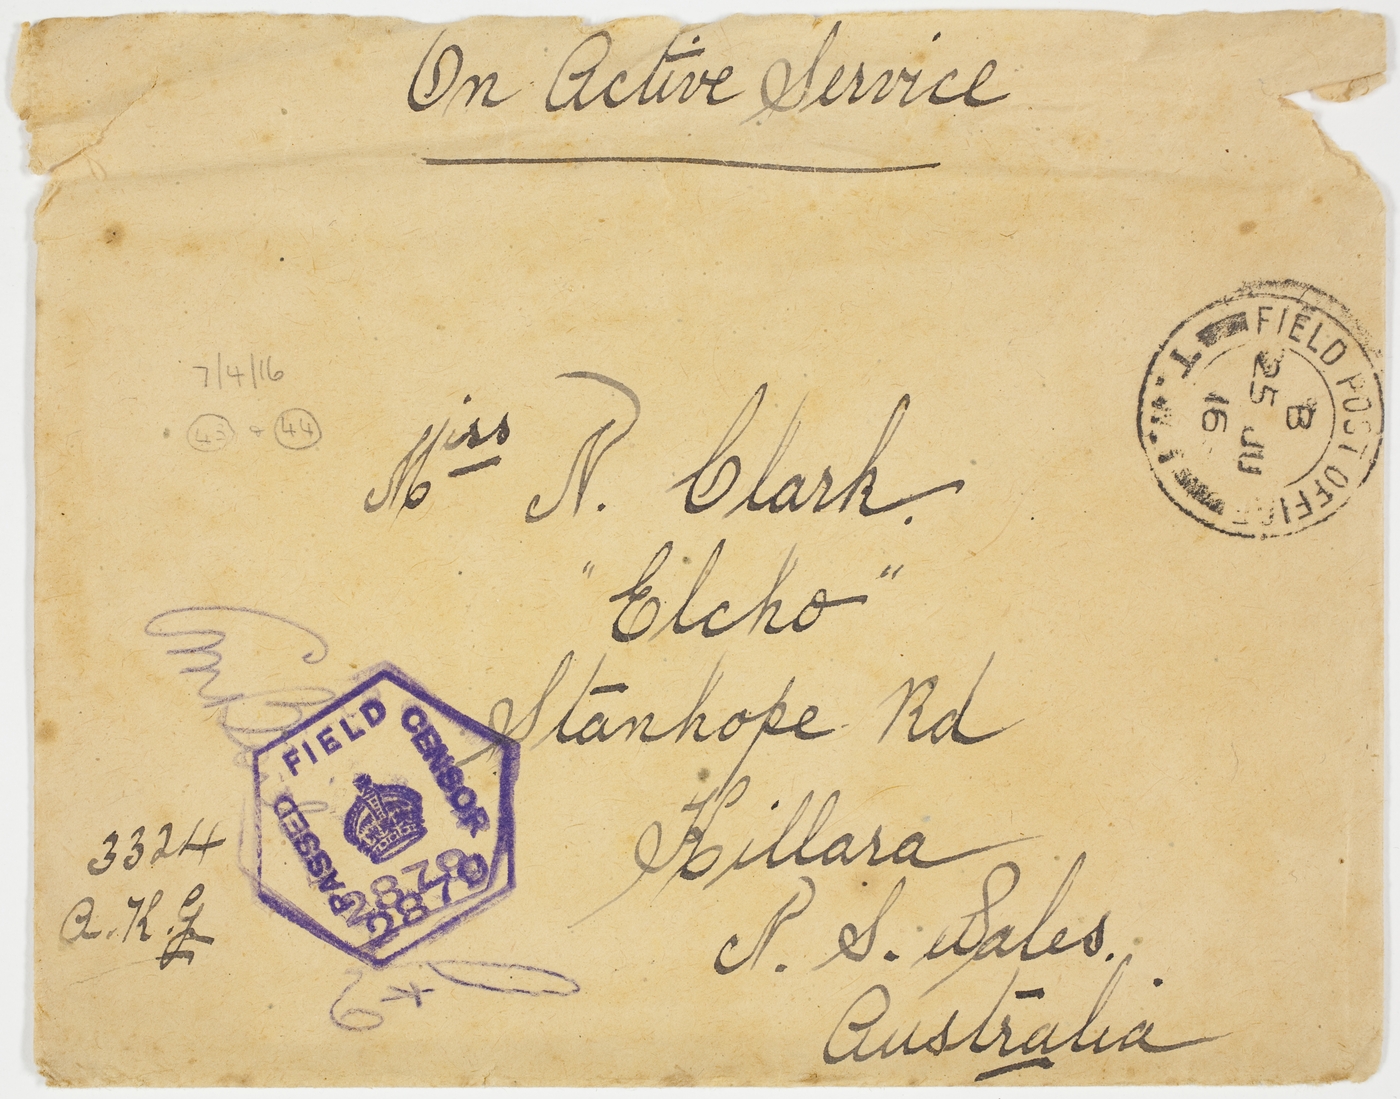 On Active Service
7/4/16
43 + 44
Miss N. Clark.
"Elcho"
Stanhope Rd
Killara
N. S. Wales.
Australia
3324
A.K.G
FIELD POST OFFICE
B
25 JU
16
PASSED FIELD CENSOR
2878
2878